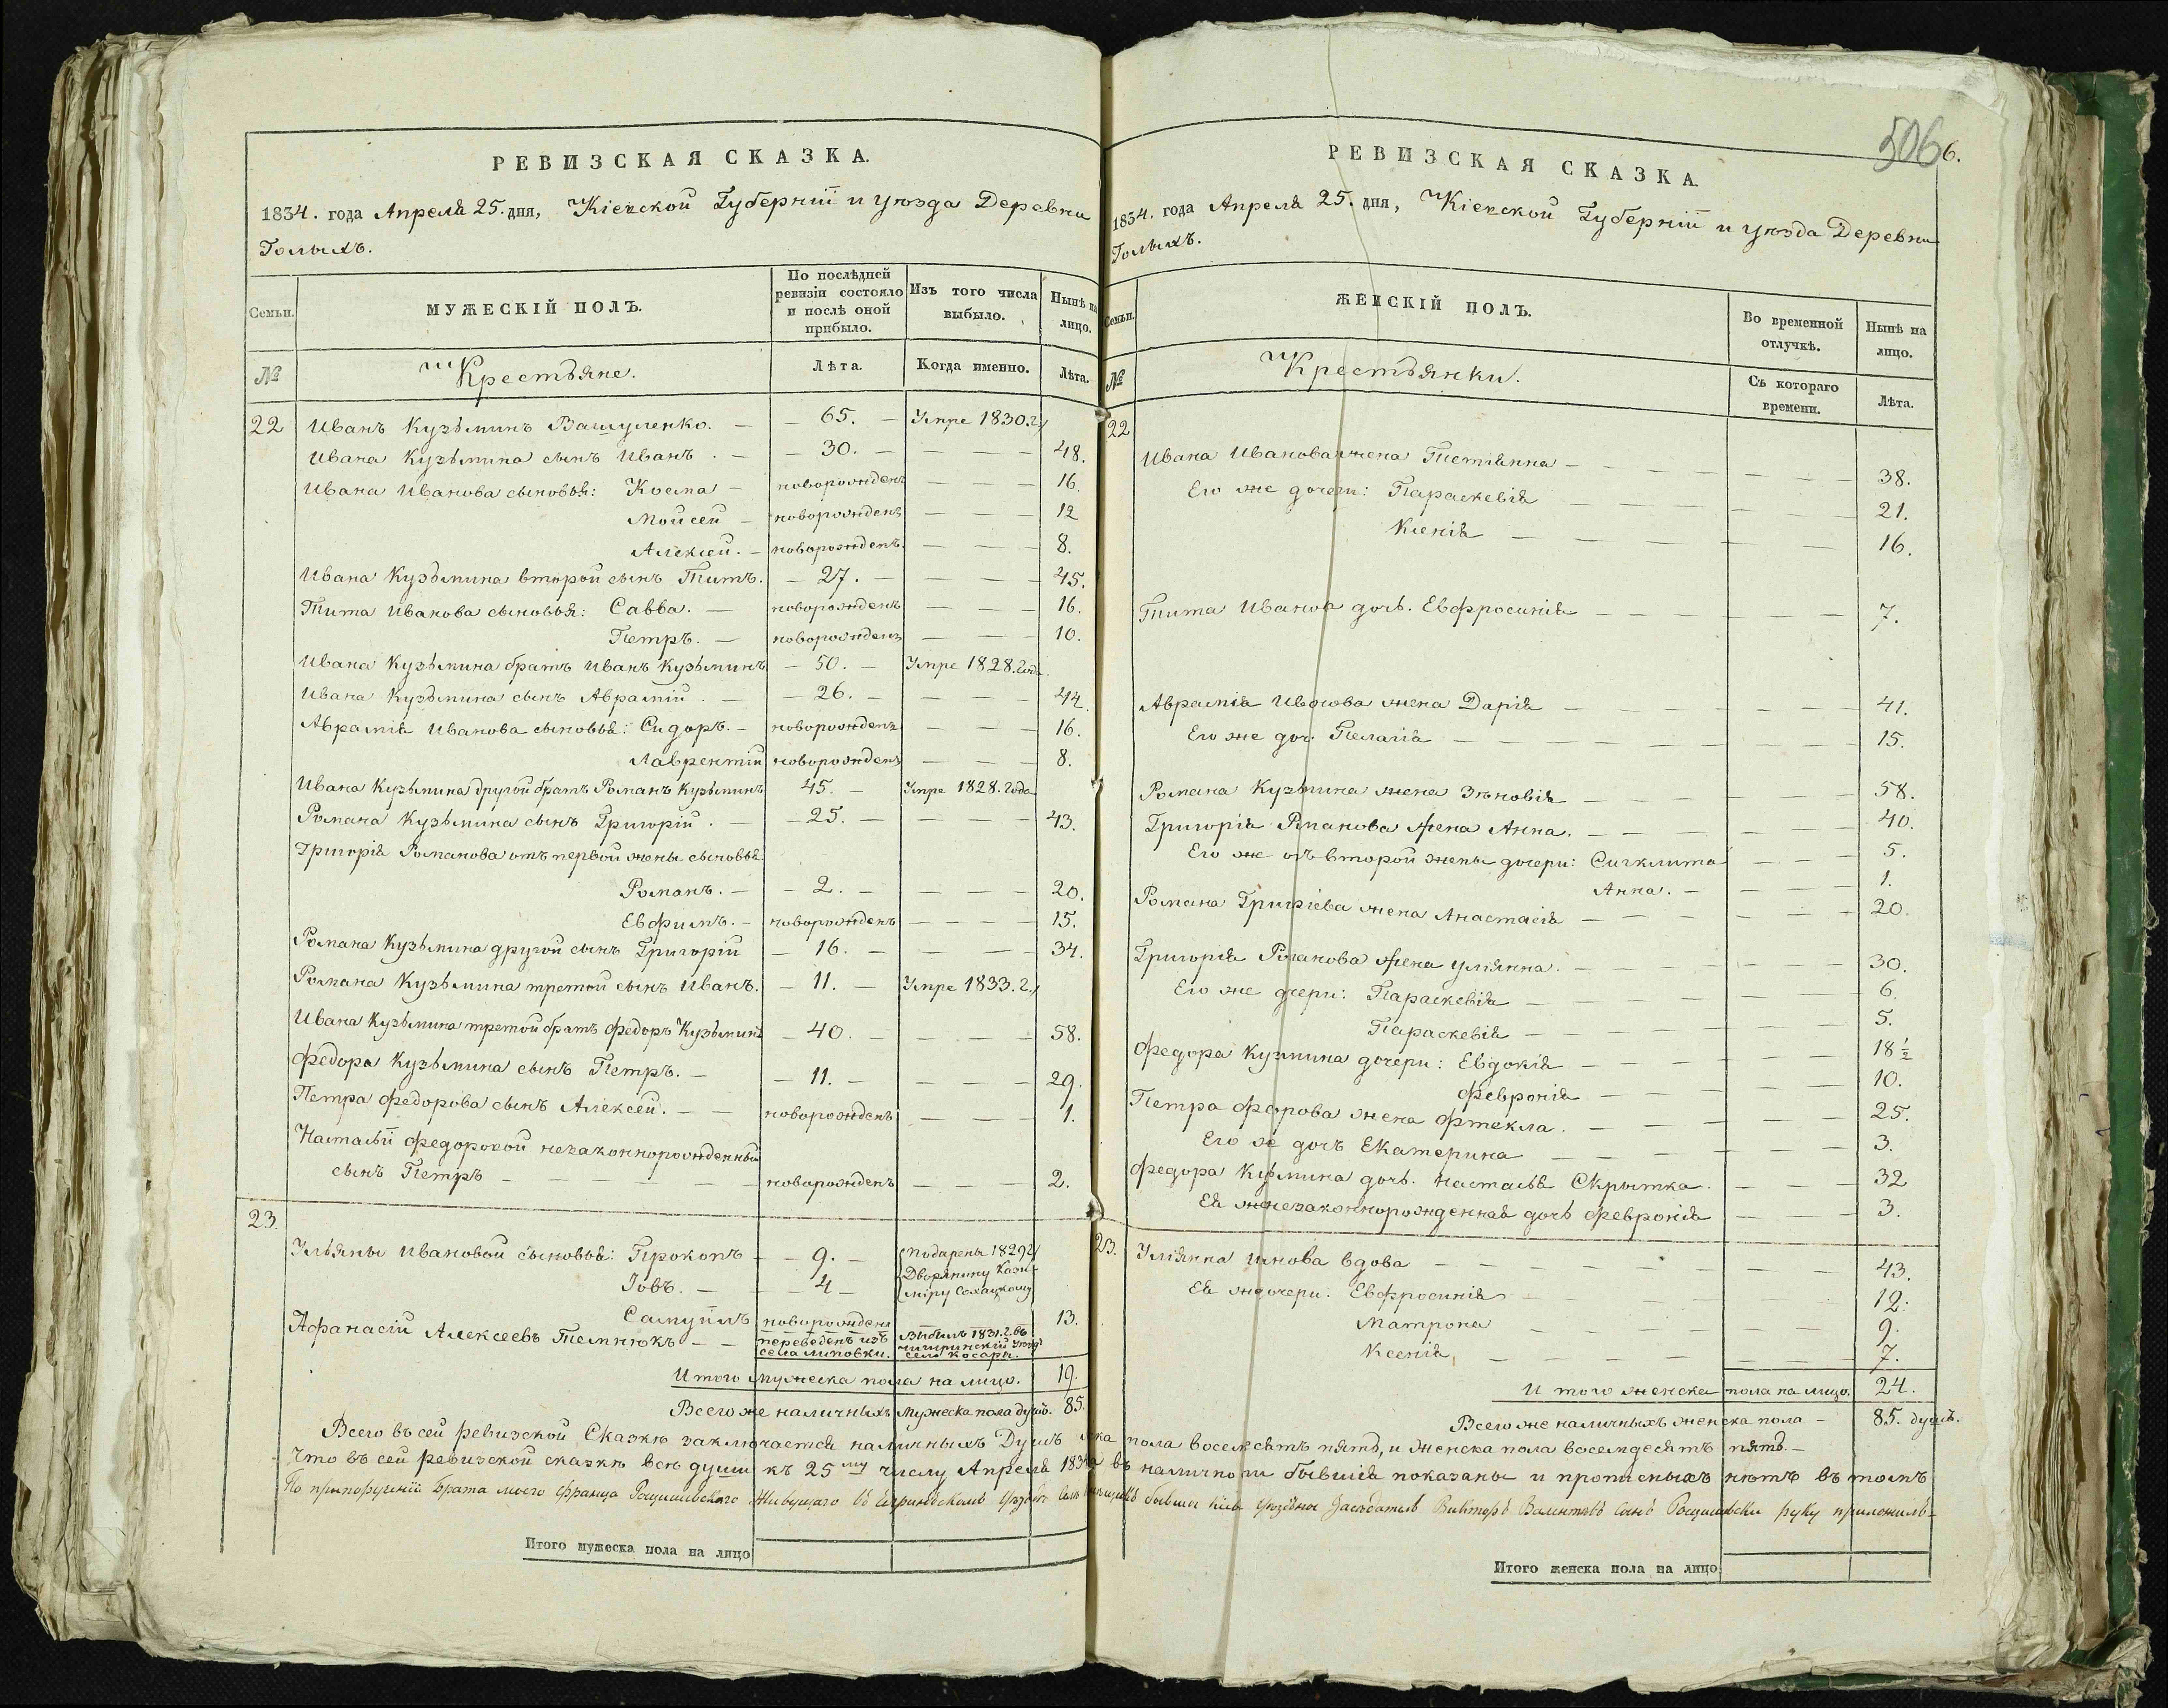 РЕВИЗСКАЯ СКАЗКА.
1834. года Апреля 25. дня, Кіевской Губерніи и уѣзда Деревни
Голыхъ.
Семьи.
МУЖЕСКІЙ ПОЛЪ.
По послѣдней
ревизіи состояло
и послѣ оной
прибыло.
Изъ того числа
выбыло.
Нынѣ на
лицо.
№
Крестьяне.
Лѣта.
Когда именно.
Лѣта.
22 Иванъ Кузьминъ Вашуленко. — 65. — Умре 1830. г.
Ивана Кузьмина сынъ Иванъ. — 30. — 48.
Ивана Иванова сыновья: Косма — новорожденъ 16.
Мойсей — новорожденъ 12
Алексей. — новорожденъ. 8.
Ивана Кузьмина второй сынъ Титъ. — 27. — 45.
Тита Иванова сыновья: Савва. — новорожденъ 16.
Петръ. — новорожденъ 10.
Ивана Кузьмина братъ Иванъ Кузьминъ — 50. — Умре 1828. года.
Ивана Кузьмина сынъ Аврамій. — 26. — 44.
Аврамія Иванова сыновья: Сидоръ. — новорожденъ 16.
Лаврентій новорожденъ 8.
Ивана Кузьмина другой братъ Романъ Кузьминъ 45. — Умре 1828. года
Романа Кузьмина сынъ Григорій. — 25. — 43.
Григорія Романова отъ первой жены сыновья
Романъ. — 2. — 20.
Евфимъ. — новорожденъ 15.
Романа Кузьмина другой сынъ Григорій — 16. — 34.
Романа Кузьмина третой сынъ Иванъ. — 11. — Умре 1833. г.
Ивана Кузьмина третой братъ Федоръ Кузьминъ — 40. — 58.
Федора Кузьмина сынъ Петръ. — 11. — 29.
Петра Федорова сынъ Алексей. — новорожденъ 1.
Настасьи Федоровой незаконнорожденный
сынъ Петръ — новорожденъ 2.
23.
Ульяны Ивановой сыновья: Прокопъ — 9. — Подарены 1829 г
Іовъ. — 4 — Дворянину Кази-
міру Сахацкому
Самуилъ новорожденъ 13.
Афанасій Алексеевъ Темнюкъ — переведенъ изъ села Липовки. Выбылъ 1831. г. въ Чигиринскій уѣздъ село Косары.
Итого мужеска пола на лицо. 19.
Всего же наличныхъ мужеска пола душъ. 85.
506 6.
РЕВИЗСКАЯ СКАЗКА.
1834. года Апреля 25. дня, Кіевской Губерніи и уѣзда Деревни
Голыхъ.
Семьи.
ЖЕНСКІЙ ПОЛЪ.
Во временной
отлучкѣ.
Нынѣ на
лицо.
№
Крестьянки.
Съ котораго
времени.
Лѣта.
22
Ивана Иванова жена Тетянна — 38.
Его же дочери: Параскевія 21.
Ксенія — 16.
Тита Иванова дочь. Евфросинія — 7.
Аврамія Иванова жена Дарія — 41.
Его же доч. Пелагія — 15.
Романа Кузмина жена Зѣновія — 58.
Григорія Романова жена Анна. — 40.
Его же отъ второй жены дочери: Сигклита — 5.
Анна. — 1.
Романа Григоріева жена Анастасія — 20.
Григорія Романова жена Уліянна. — 30.
Его же дочери: Параскевія — 6.
Параскевія — 5.
Федора Кузмина дочери: Евдокія — 18 ½
Февронія — 10.
Петра Федорова жена Фтекла. — 25.
Его же дочъ Екатерина — 3.
Федора Кузмина дочь. Настасья Скрытка. — 32
Ея же незаконнорожденная дочь Февронія — 3.
23. Уліянна Иванова вдова — 43.
Ея же дочери: Евфросинія — 12.
Матрона — 9.
Ксенія, — 7.
Итого женска пола на лицо. 24.
Всего же наличныхъ женска пола — 85. душъ.
Всего въ сей ревизской Сказкѣ заключается наличныхъ Душъ мужска пола восемдесятъ пять, и женска пола восемдесятъ пять. —
Что въ сей ревизской сказкѣ всѣ души къ 25му числу Апреля 1834 г въ наличности бывшія показаны и прописныхъ нѣтъ въ томъ
По припорученій Брата моего Франца Рощишевскаго Живущаго въ уѣздѣ бывши уѣздный Засѣдатель Викторъ Валентіевъ Сынъ Рощишевски руку приложилъ —
Итого мужеска пола на лицо
Итого женска пола на лицо